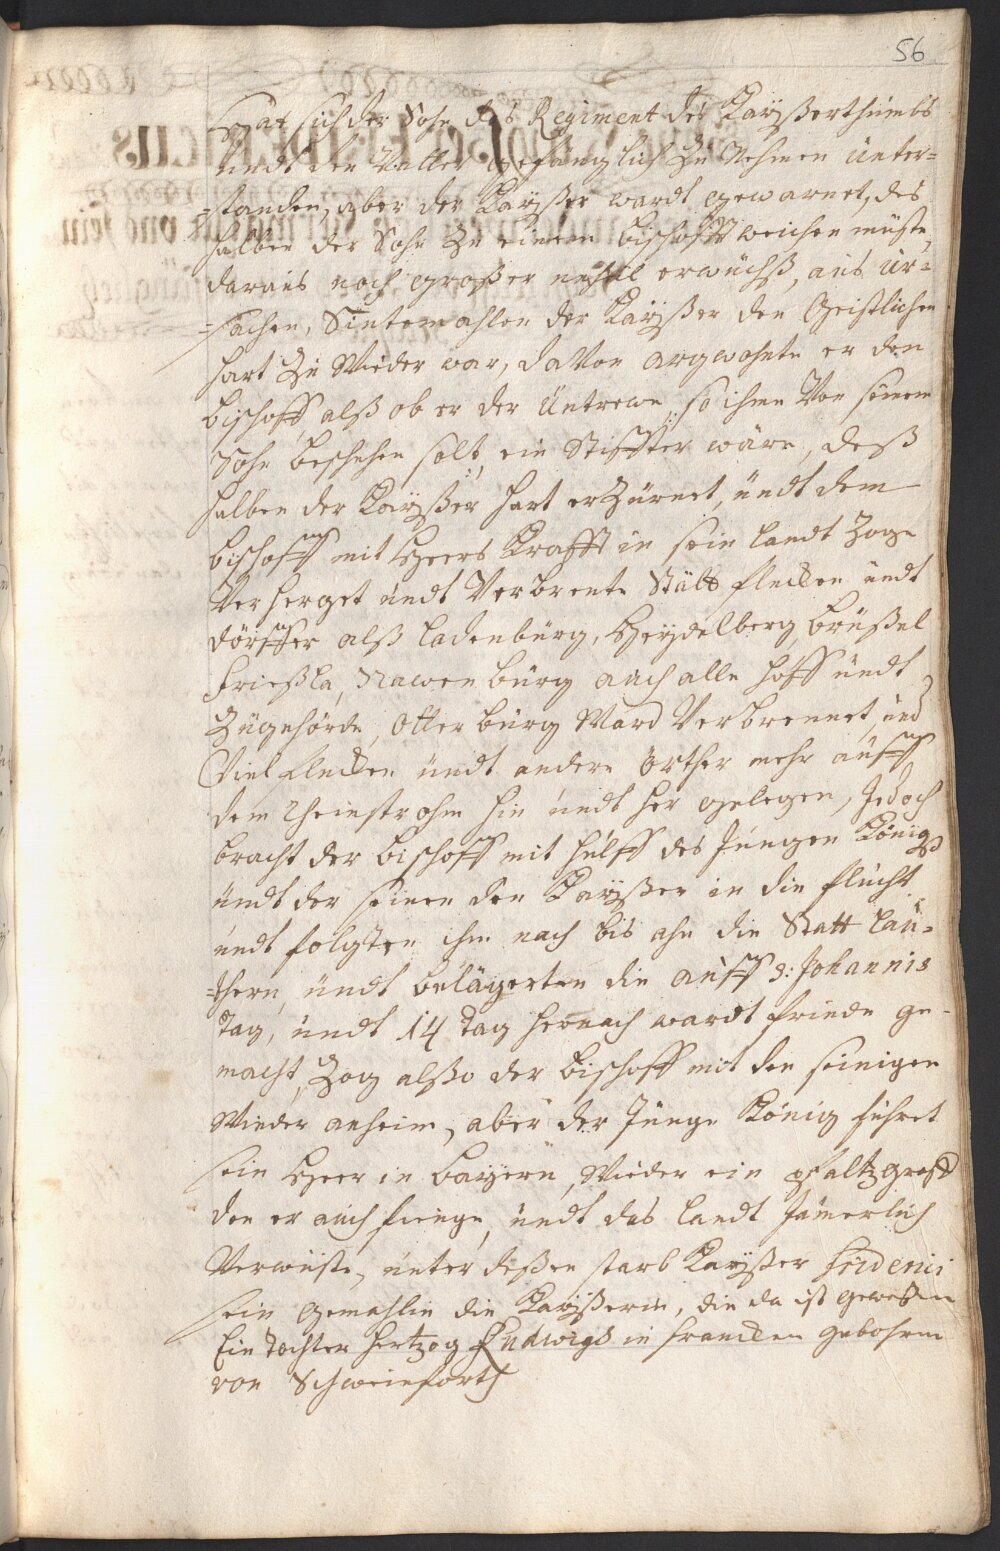 56
Hat sich der Sohn des Regiment des Kaÿßerthumbs
undt den Vatter gefänglich Zu Nehmen unter=
=standen, aber der Kaÿßer wardt gewarnet, des
halben der Sohn Zu einem Bischoff weichen müste,
daraus noch großer unfall erwuchß, aus ur=
=sachen, Sintemahlen der Kaÿßer den Geistlichen
hart Zu Wieder war, daVon argwohnte er den
Bischoff alß ob er der Untrewe, so ihme Von seinem
Sohn beschehen solt, ein Stiffter wäre, deß
halben der Kaÿßer hart erZürnet, undt dem
Bischoff mit Heers Krafft in sein Landt Zoge
Verherget undt Verbrente Stätt flecken undt
dörffer alß Ladenburg, Heÿdelberg, Brußel
Frießla, Nawenburg auch alle Hoff undt
Zugehörde, Otterburg Ward Verbrennet, und
Viel flecken undt andere örther mehr auff
dem Rheinstrohm hin undt her gelegen, Jedoch
bracht der Bischoff mit hülff des Jungen Königß
undt der seinen den Kaÿßer in die flucht
undt folgten ihm nach bis ahn die Statt Lau=
=thern, undt belägerten die auff S: Johannis
Tag, undt 14 Tag hernach wardt friede ge-
macht, Zog alßo der Bischoff mit den seinigen
Wieder anheim, aber der Junge König führet
sein Heer in Baÿern, Wieder ein pfaltzgraff
den er auch fienge, undt das Landt Jämerlich
Verwüste, unter deßen starb Kaÿßer Friderici
sein Gemahlin die Kaÿßerin, die da ist gewesen
Ein Tochter Hertzog Ludwigs in francken gebohren
von Schweinforth